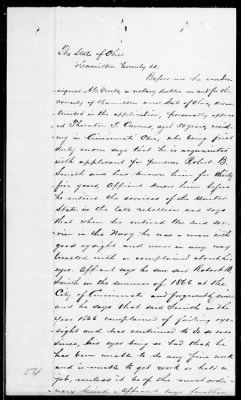 The State of Ohio
Hamilton County ss.
Before me the under
signed a notary public in and for the
County of Hamilton and State of Ohio,
in the application, personally appear
ed Thornton F. aged 50 years, resid
ing in Cincinnati Ohio, who being first
duly sworn says that he is acquainted
with applicant for pension Robert B.
Smith and has known him for thirty
five years. Affiant knew him before
he entered the service of the United
States in the late rebellion, and says
that when he entered the said ser-
vice in the Navy he was a man with
good eyesight and never in any way
troubled with or complained about his
eyes. Affiant says he saw said Robert B.
Smith in the summer of 1866 at the
City of Cincinnati and frequently since
and he says that said Smith in the
year 1866 complained of failing eye-
sight and has continued to do so ever
since, his eyes being so bad that he
has been unable to do any fine work
and is unable to get work or hold a
job, unless it be of the most ordi-
nary kind. Affiant says further